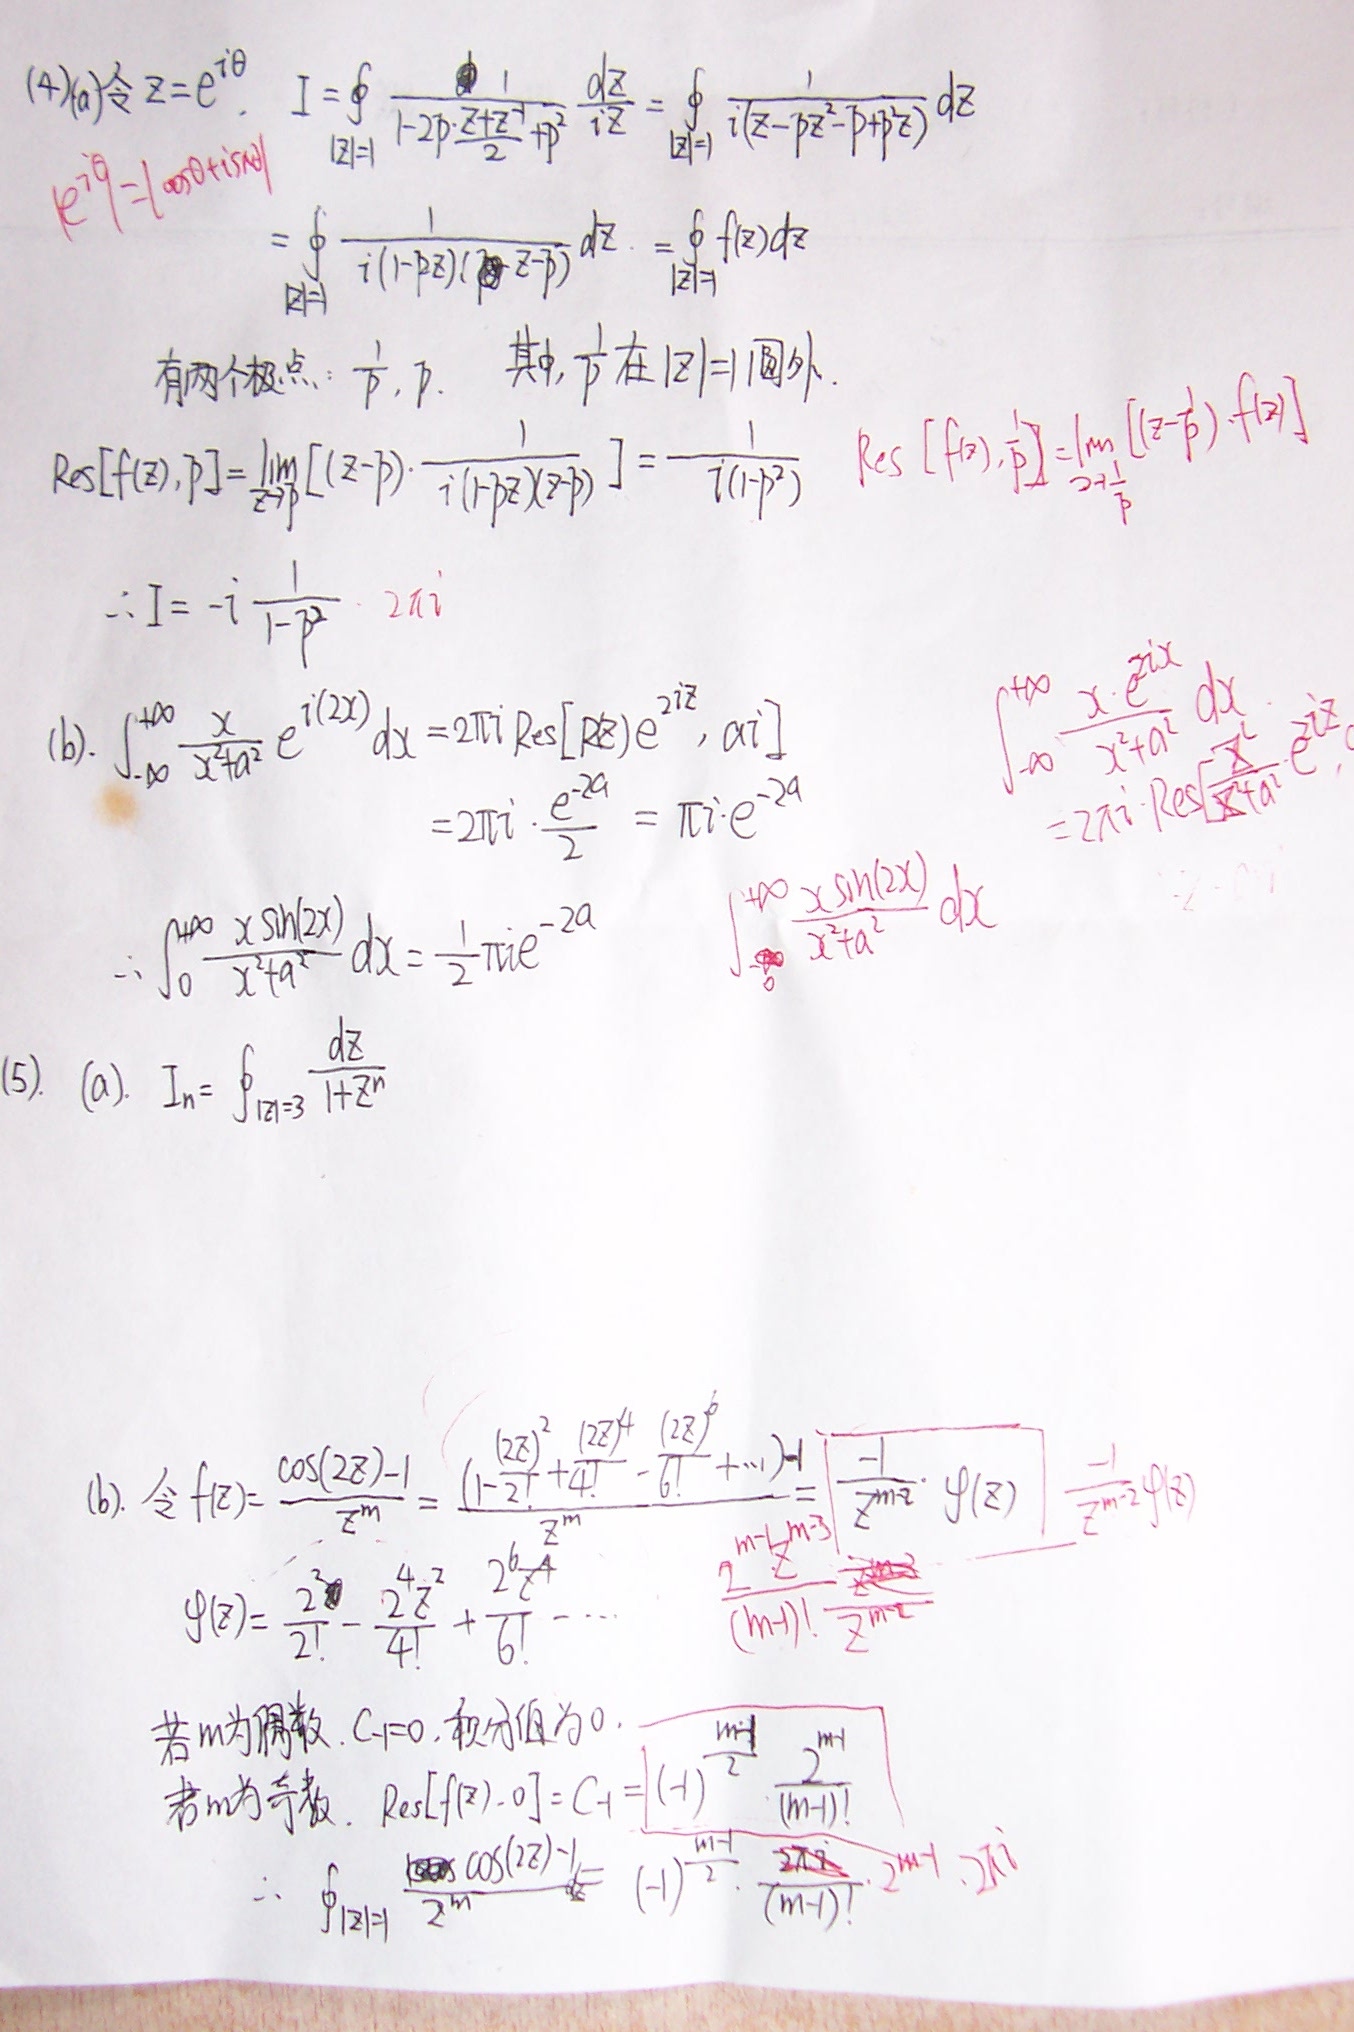 (4)(a)令 z=e^{iθ}. I = ∮_{|z|=1} \frac{1}{1-2p·\frac{z+z^{-1}}{2}+p^2} \frac{dz}{iz} = ∮_{|z|=1} \frac{1}{i(z-pz^2-p+p^2z)} dz
|e^{iθ}|=|cosθ+isinθ|
= ∮_{|z|=1} \frac{1}{i(1-pz)(z-p)} dz. = ∮_{|z|=1} f(z)dz
有两个极点: \frac{1}{p}, p. 其中, \frac{1}{p} 在 |z|=1 圆外.
Res[f(z), p] = \lim_{z→p} [(z-p)· \frac{1}{i(1-pz)(z-p)}] = \frac{1}{i(1-p^2)}
Res [f(z), \frac{1}{p}] = \lim_{z→\frac{1}{p}} [(z-\frac{1}{p})·f(z)]
∴ I = -i \frac{1}{1-p^2} · 2πi
(b). ∫_{-∞}^{+∞} \frac{x}{x^2+a^2} e^{i(2x)} dx = 2πi Res[R(z)e^{2iz}, ai]
= 2πi · \frac{e^{-2a}}{2} = πi·e^{-2a}
∫_{-∞}^{+∞} \frac{x·e^{2ix}}{x^2+a^2} dx.
= 2πi·Res[\frac{z}{z^2+a^2}·e^{2iz},
∴ ∫_0^{+∞} \frac{x sin(2x)}{x^2+a^2} dx = \frac{1}{2} πie^{-2a}
∫_0^{+∞} \frac{x sin(2x)}{x^2+a^2} dx
(5). (a). I_n = ∮_{|z|=3} \frac{dz}{1+z^n}
(b). 令 f(z) = \frac{cos(2z)-1}{z^m} = \frac{(1-\frac{(2z)^2}{2!}+\frac{(2z)^4}{4!}-\frac{(2z)^6}{6!}+⋯)-1}{z^m} = \frac{-1}{z^{m-2}}· φ(z)
\frac{-1}{z^{m-2}} φ(z)
φ(z) = \frac{2^2}{2!} - \frac{2^4z^2}{4!} + \frac{2^6z^4}{6!} - ⋯
\frac{2^{m-1}z^{m-3}}{(m-1)! z^{m-2}}
若m为偶数. C_{-1}=0, 积分值为0.
若m为奇数. Res[f(z), 0] = C_{-1} = (-1)^{\frac{m-1}{2}} \frac{2^{m-1}}{(m-1)!}
∴ ∮_{|z|=1} \frac{cos(2z)-1}{z^m} dz = (-1)^{\frac{m-1}{2}} · \frac{2πi}{(m-1)!} · 2^{m-1} · 2πi